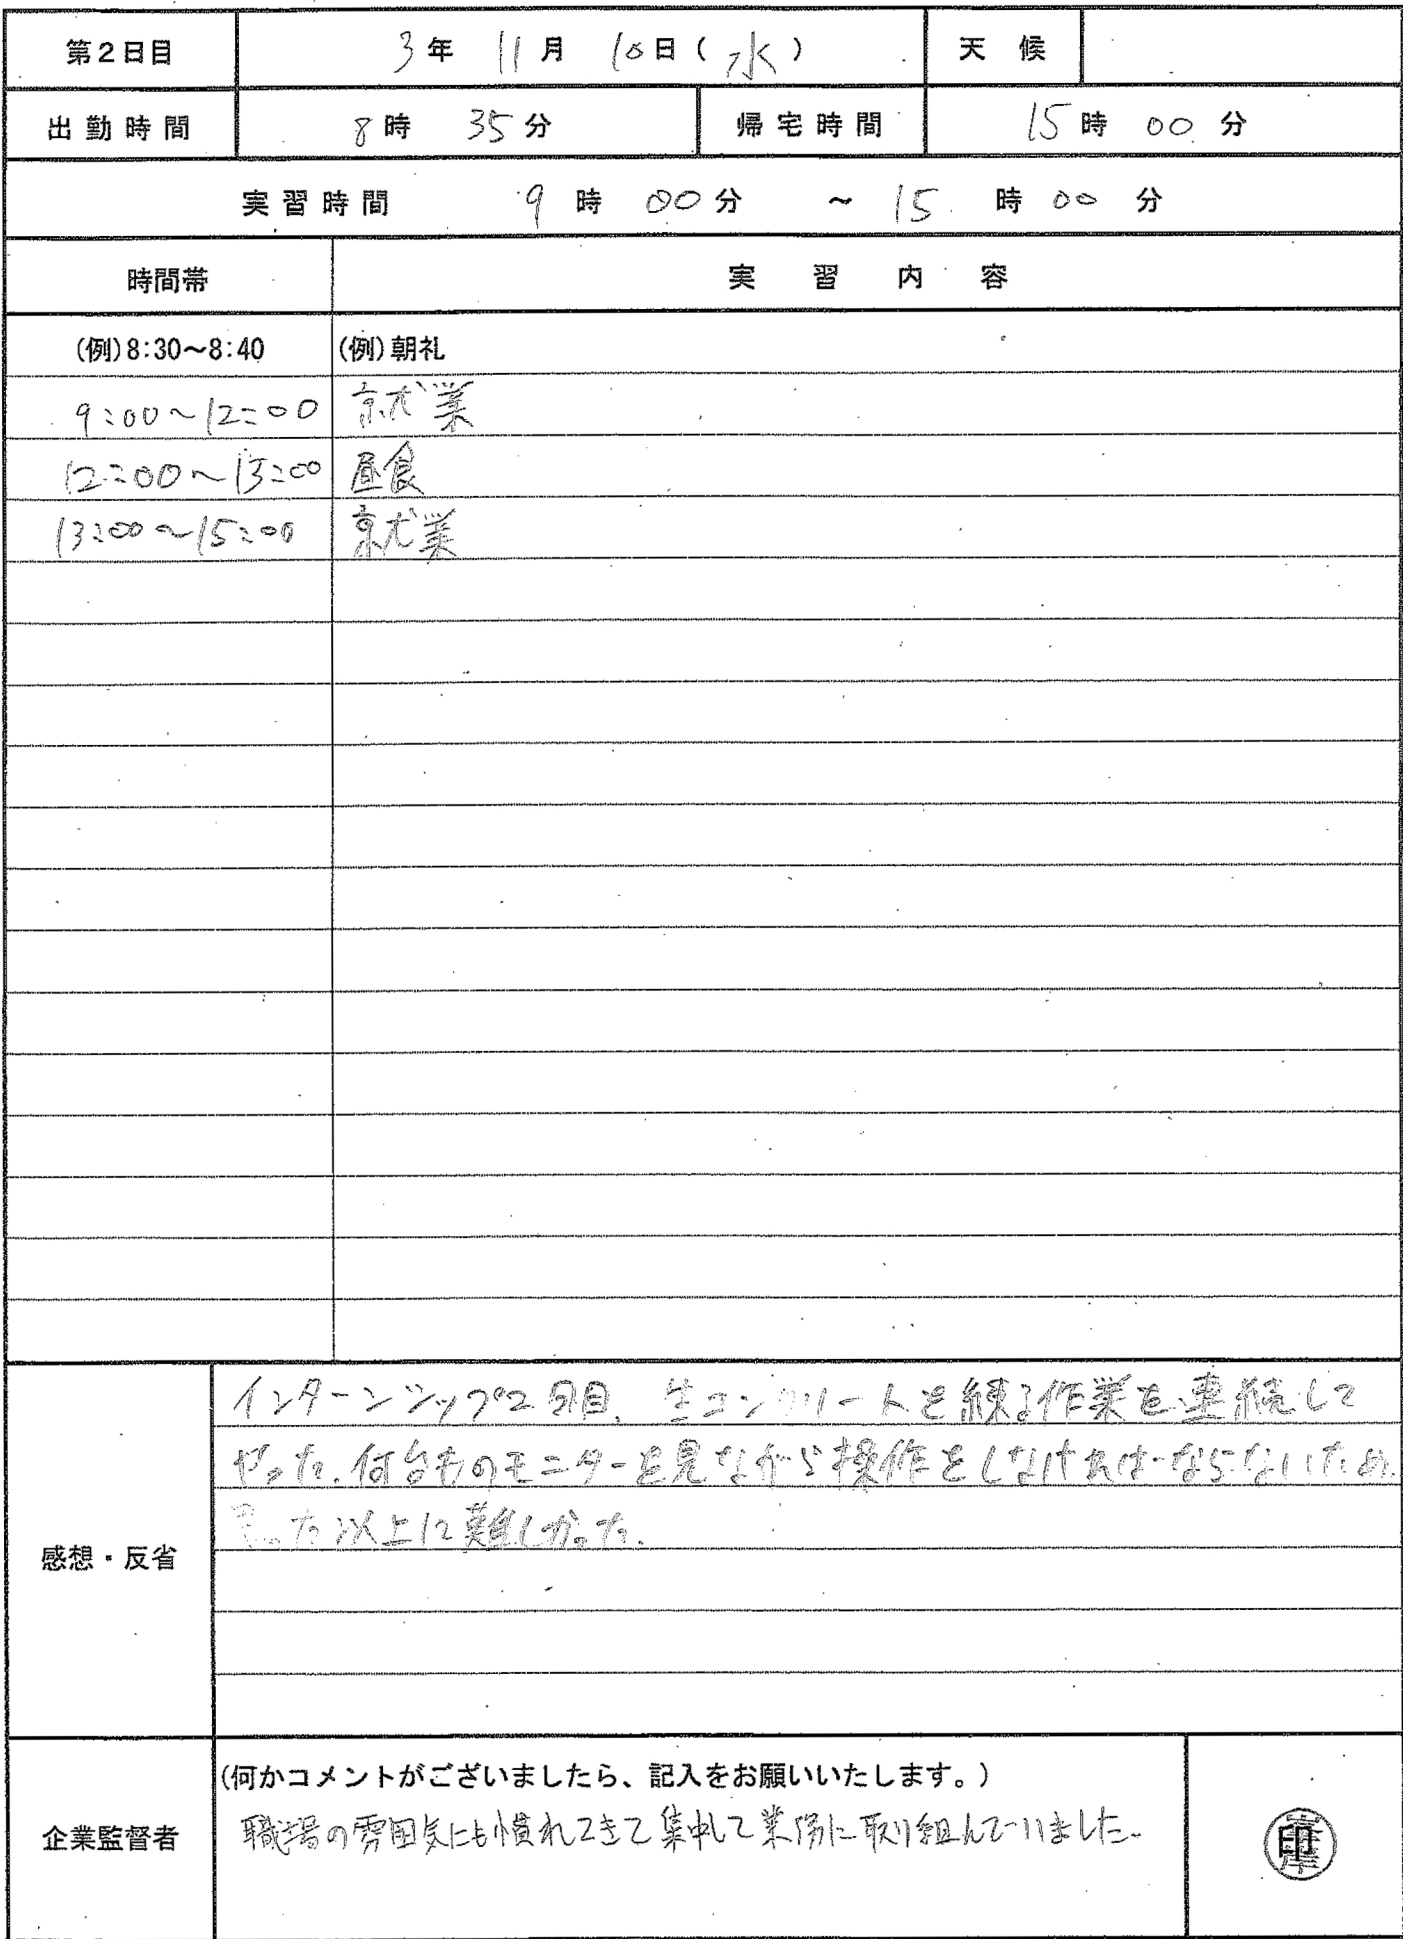 第2日目 3年 11月 10日(水) 天候
出勤時間 8時 35分 帰宅時間 15時 00分
実習時間 9時 00分 ~ 15時 00分
時間帯 実習内容
(例)8:30~8:40 (例)朝礼
9:00~12:00 就業
12:00~13:00 昼食
13:00~15:00 就業
インターンシップ2日目、生コンクリートを練る作業を連続して
やった。何台ものモニターを見ながら操作をしなければならないため、
思った以上に難しかった。
感想・反省
(何かコメントがございましたら、記入をお願いいたします。)
職場の雰囲気にも慣れてきて集中して業務に取り組んでいました。
企業監督者
印